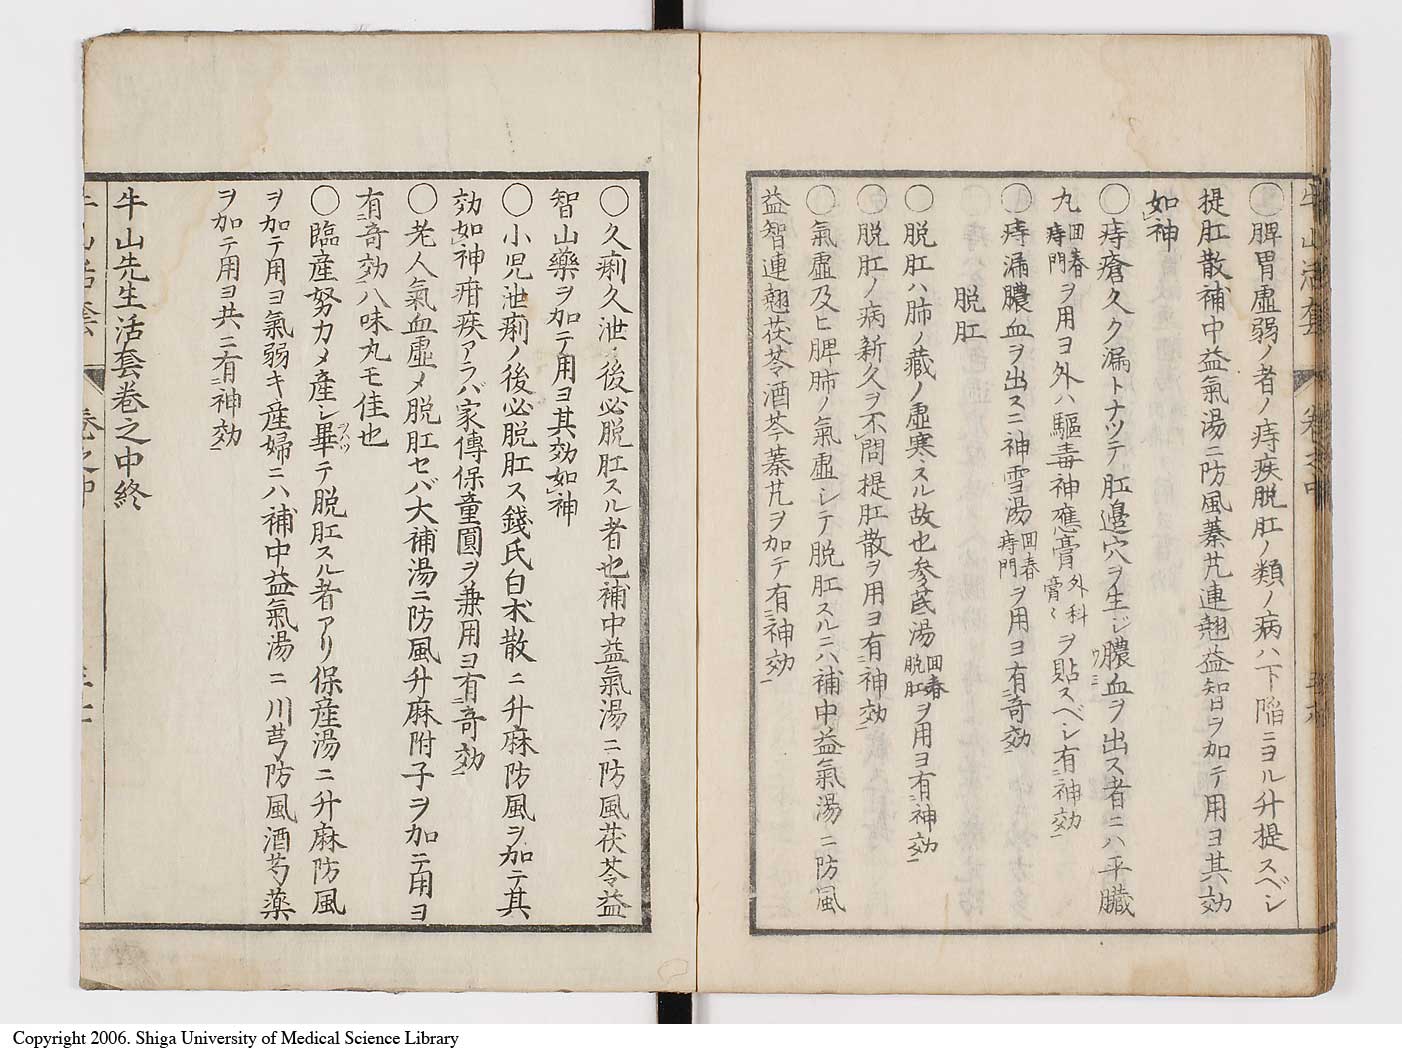 〇脾胃虚弱ノ者ノ痔疾脱肛ノ類ノ病ハ下陥ニヨル升提スベシ
提肛散補中益氣湯ニ防風蓁艽連翹益智ヲ加テ用ヨ其効
如神
〇痔瘡久ク漏トナツテ肛邉穴ヲ生ジ膿血ヲ出ス者ニハ平臓
丸回春痔門ヲ用ヨ外ハ駆毒神應膏外科膏〻ヲ貼スベシ有神効
〇痔漏膿血ヲ出スニ神雪湯回春痔門ヲ用ヨ有奇効
脱肛
〇脱肛ハ肺ノ蔵ノ虚寒スル故也参芪湯回春脱肛ヲ用ヨ有神効
〇脱肛ノ病新久ヲ不問提肛散ヲ用ヨ有神効
〇氣虚及ヒ脾肺ノ氣虚シテ脱肛スルニハ補中益氣湯ニ防風
益智連翹茯苓酒芩蓁艽ヲ加テ有神効
〇久痢久泄ノ後必脱肛スル者也補中益氣湯ニ防風茯苓益
智山藥ヲ加テ用ヨ其効如神
〇小児泄痢ノ後必脱肛ス錢氏白朮散ニ升麻防風ヲ加テ其
効如神疳疾アラバ家傳保童圓ヲ兼用ヨ有奇効
〇老人氣血虚乄脱肛セバ大補湯ニ防風升麻附子ヲ加テ用ヨ
有奇効八味丸モ佳也
〇臨産努力乄産シ畢テ脱肛スル者アリ保産湯ニ升麻防風
ヲ加テ用ヨ氣弱キ産婦ニハ補中益氣湯ニ川芎防風酒芍藥
ヲ加テ用ヨ共ニ有神効
牛山先生活套巻之中終
牛山活套 巻之中